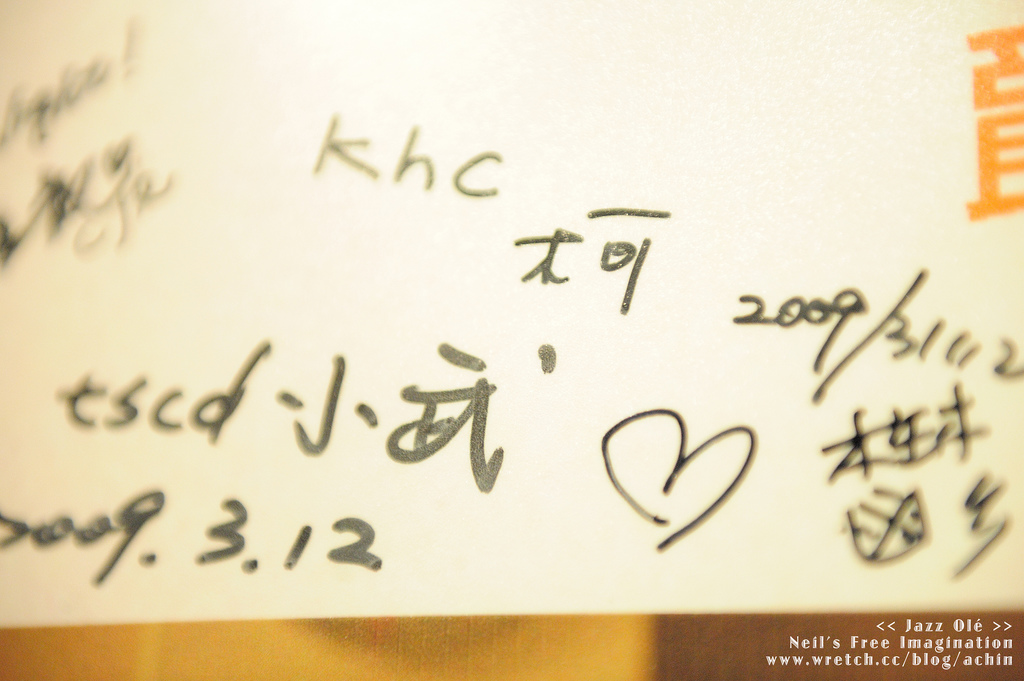 khc
柯
tscd 小武
2009.3.12
2009/3/12
<< Jazz Olé >>
Neil's Free Imagination
www.wretch.cc/blog/achin